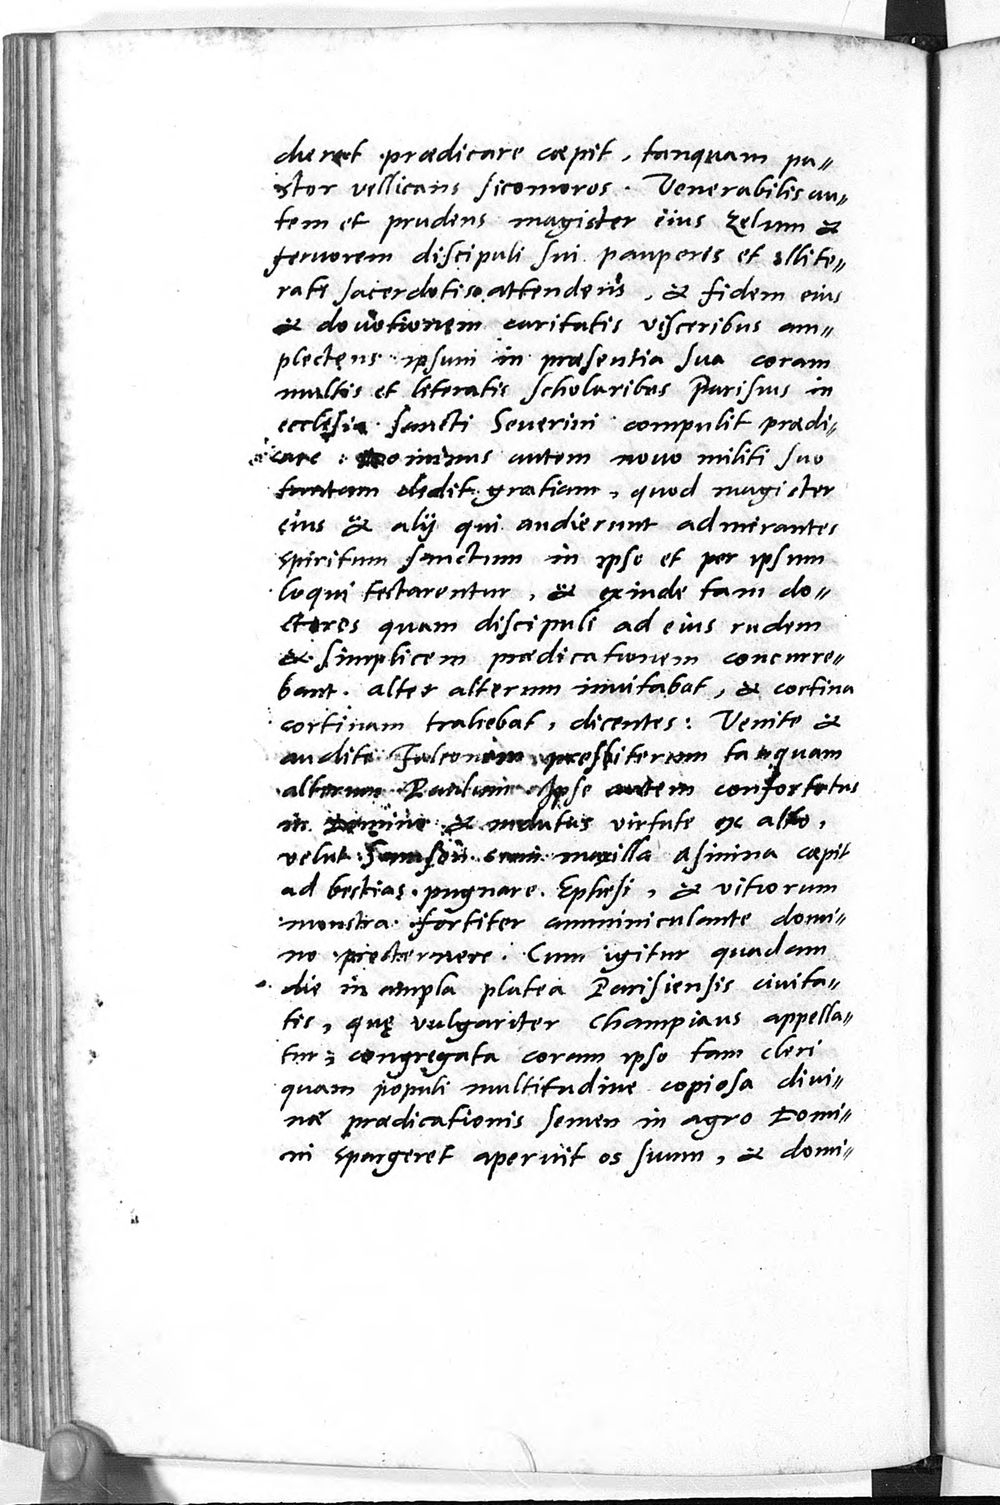 dieret prædicare cæpit, tanquam pa„
stor vellicans sicomoros. Venerabilis au„
tem et prudens magister eius zelum &
feruorem discipuli sui pauperis et illite„
rati sacerdotis attendens, & fidem eius
& deuotionem caritatis visceribus am„
plectens ipsum in præsentia sua coram
multis et literatis scholaribus Parisius in
ecclesia sancti Seuerini compulit prædi„
care: Dominus autem nouo militi suo
tantam dedit gratiam, quod magister
eius & alij qui audierunt admirantes
spiritum sanctum in ipso et per ipsum
loqui testarentur, & exinde tam do„
ctores quam discipuli ad eius rudem
& simplicem prædicationem concurre„
bant. alter alterum inuitabat, & cortina
cortinam trahebat, dicentes: Venite &
audite Fulconem presbiterum tanquam
alterum Paulum Ipse autem confortatus
in Domino & indutus virtute ex alto,
velut Samson cum maxilla asinina cæpit
ad bestias pugnare Ephesi, & vitiorum
monstra fortiter amminiculante domi„
no prosternere. Cum igitur quadam
die in ampla platea Parisiensis ciuita„
tis, quę vulgariter Champiaus appella„
tur; congregata coram ipso tam cleri
quam populi multitudine copiosa diui„
næ prædicationis semen in agro Domi„
ni spargeret aperuit os suum, & domi„